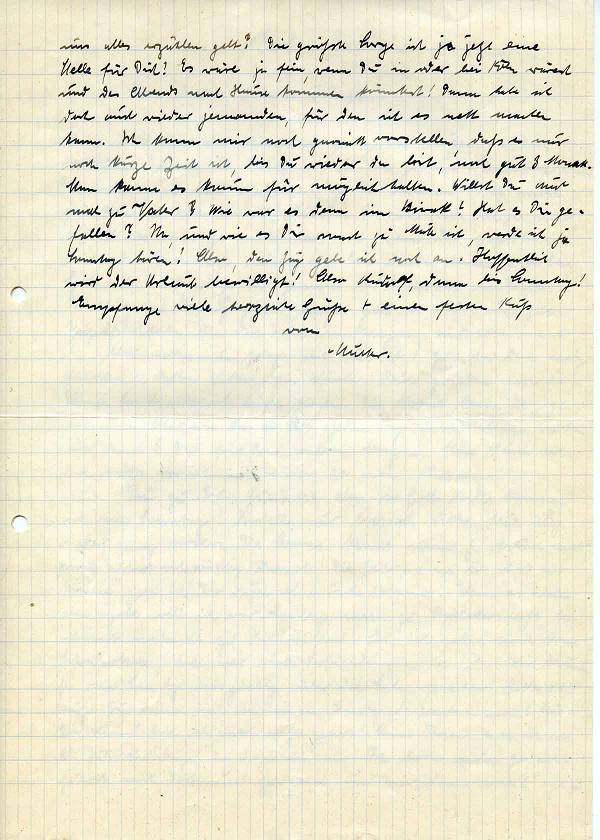 uns alles erzählen gelt? Die größte Sorge ist ja jetzt eine
Stelle für Dich! Es wäre ja fein, wenn Du in oder bei Köln wärest
und des Abends nach Hause kommen könntest! Dann habe ich
doch auch wieder jemanden, für den ich es nett machen
kann. Ich kann mir noch garnicht vorstellen, daß es nur
noch kurze Zeit ist, bis Du wieder da bist, mal gut 3 Monate.
Man kann es kaum für möglich halten. Willst Du mit
mal zu Vater? Wie war es denn im Biwak? Hat es Dir ge-
fallen? Na, und wie es Dir noch zu ist, werde ich ja
Sonntag hören! Also, den Zug gebe ich noch an. Hoffentlich
wird der Urlaub bewilligt! Also Rudolf, dann bis Sonntag!
Empfange viele herzliche Grüße + einen festen Kuß
von
Mutter.